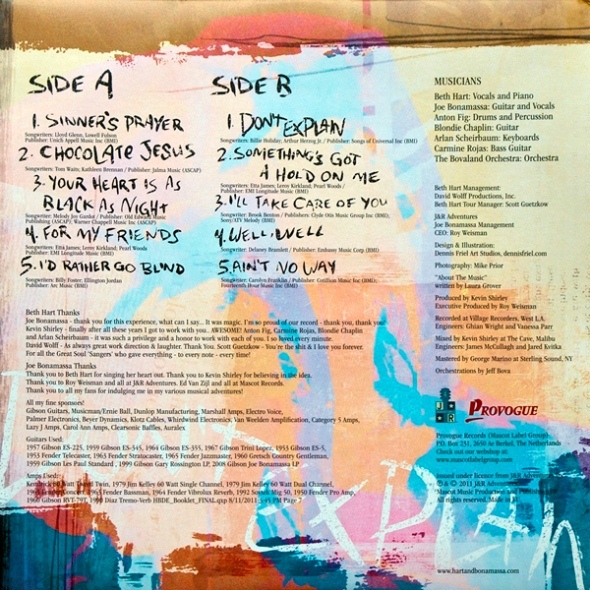 SIDE A
1. SINNER'S PRAYER
Songwriters: Lloyd Glenn, Lowell Fulson
Publisher: Unich Appell Music Inc (BMI)
2. CHOCOLATE JESUS
Songwriters: Tom Waits, Kathleen Brennan / Publisher: Jalma Music (ASCAP)
3. YOUR HEART IS AS
BLACK AS NIGHT
Songwriter: Melody Joy Gardot / Publisher: Old Edward Music
Publishing (ASCAP), Warner Chappell Music Inc (ASCAP)
4. FOR MY FRIENDS
Songwriters: Etta James, Leroy Kirkland, Pearl Woods
Publisher: EMI Longitude Music (BMI)
5. I'D RATHER GO BLIND
Songwriters: Billy Foster, Ellington Jordan
Publisher: Arc Music (BMI)
SIDE B
1. DON'T EXPLAIN
Songwriters: Billie Holiday, Arthur Herzog Jr / Publisher: Songs of Universal Inc (BMI)
2. SOMETHING'S GOT
A HOLD ON ME
Songwriters: Etta James, Leroy Kirkland, Pearl Woods /
Publisher: EMI Longitude Music (BMI)
3. I'LL TAKE CARE OF YOU
Songwriter: Brook Benton / Publishers: Clyde Otis Music Group Inc (BMI);
Sony/ATV Melody (BMI)
4. WELL, WELL
Songwriter: Delaney Bramlett / Publisher: Embassy Music Corp (BMI)
5. AIN'T NO WAY
Songwriter: Carolyn Franklin / Publisher: Cotillion Music Inc (BMI);
Fourteenth Hour Music Inc (BMI)
MUSICIANS
Beth Hart: Vocals and Piano
Joe Bonamassa: Guitar and Vocals
Anton Fig: Drums and Percussion
Blondie Chaplin: Guitar
Arlan Scheirbaum: Keyboards
Carmine Rojas: Bass Guitar
The Bovaland Orchestra: Orchestra
Beth Hart Management:
David Wolff Productions, Inc.
Beth Hart Tour Manager: Scott Guetzkow
J&R Adventures
Joe Bonamassa Management
CEO: Roy Weisman
Design & Illustration:
Dennis Friel Art Studios, dennisfriel.com
Photography: Mike Prior
"About The Music"
written by Laura Grover
Produced by Kevin Shirley
Executive Produced by Roy Weisman
Recorded at Village Recorders, West L.A.
Engineers: Ghian Wright and Vanessa Parr
Mixed by Kevin Shirley at The Cave, Malibu
Engineers: James McCullagh and Jared Kvitka
Mastered by George Marino at Sterling Sound, NY
Orchestrations by Jeff Bova
Beth Hart Thanks
Joe Bonamassa - thank you for this experience, what can I say... It was magic. I'm so proud of our record - thank you, thank you!
Kevin Shirley - finally after all these years I got to work with you...AWESOME! Anton Fig, Carmine Rojas, Blondie Chaplin
and Arlan Scheirbaum - it was such a privilege and a honor to work with each of you. I so loved every minute.
David Wolff - As always great work direction & laughter. Thank You. Scott Guetzkow - You're the shit & I love you forever.
For all the Great Soul 'Sangers' who gave everything - to every note - every time!
Joe Bonamassa Thanks
Thank you to Beth Hart for singing her heart out. Thank you to Kevin Shirley for believing in the idea.
Thank you to Roy Weisman and all at J&R Adventures. Ed Van Zijl and all at Mascot Records.
Thank you to all my fans for indulging me in my various musical adventures!
All my fine sponsors!
Gibson Guitars, Musicman/Ernie Ball, Dunlop Manufacturing, Marshall Amps, Electro Voice,
Palmer Electronics, Beyer Dynamics, Klotz Cables, Whirlwind Electronics, Van Weelden Amplification, Category 5 Amps,
Lazy J Amps, Carol Ann Amps, Clearsonic Baffles, Auralex
Guitars Used:
1957 Gibson ES-225, 1959 Gibson ES-345, 1964 Gibson ES-355, 1967 Gibson Trini Lopez, 1953 Gibson ES-5,
1953 Fender Telecaster, 1963 Fender Stratocaster, 1965 Fender Jazzmaster, 1960 Gretsch Country Gentleman,
1999 Gibson Les Paul Standard, 1999 Gibson Gary Rossington LP, 2008 Gibson Joe Bonamassa LP
Amps Used:
Twin, 1979 Jim Kelley 60 Watt Single Channel, 1979 Jim Kelley 60 Watt Dual Channel,
1963 Fender Bassman, 1964 Fender Vibrolux Reverb, 1992 Soundc Mtg 50, 1950 Fender Pro Amp,
1960 Gibson Tremo-Verb HBDE_Booklet_FINAL.qxp 8/11/2011 3:45 PM Page 7
J R
PROVOGUE
Provogue Records (Mascot Label Group)
P.O. Box 231, 2650 Ae Berkel, The Netherlands
Check out our webshop at
www.mascotlabelgroup.com
Issued under license from J&R Adventures
℗ & © 2011 J&R Adventures
Mascot Music Productions and Publishing
All rights reserved.
explain
www.hartandbonamassa.com